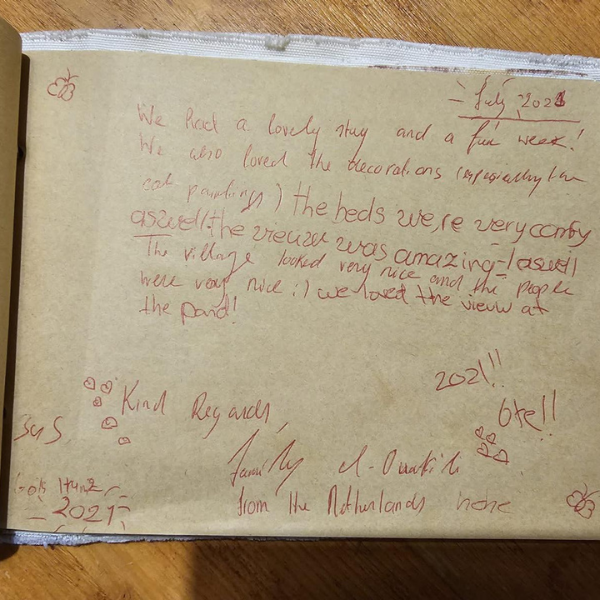 - July 2021
We had a lovely stay and a fun week!
We also loved the decorations (especially the
cat paintings) the beds we,re very comfy
aswell the vieuw was amazing aswell
The village looked very nice and the people
were very nice :) we loved the view at
the pond!
2021!!
Kind Regards,
Family el-
from the Netherlands
2021